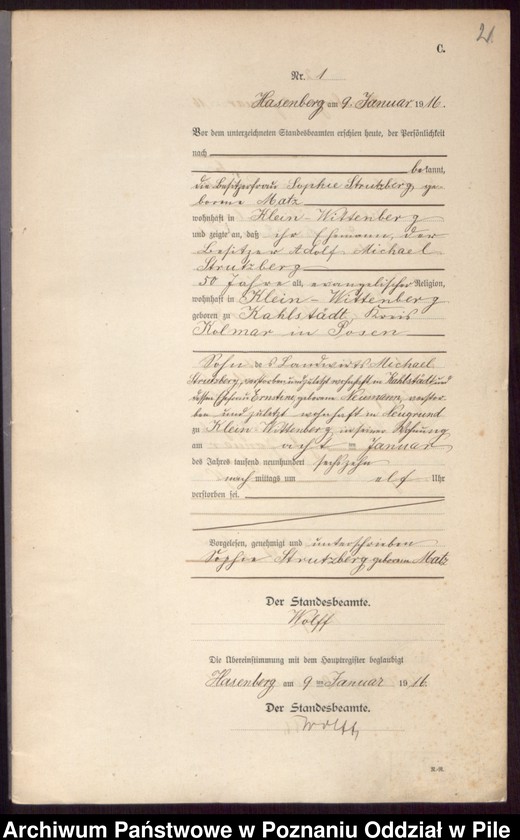 21.
C.
Nr. 1
Hasenberg am 9. Januar 1916.
Vor dem unterzeichneten Standesbeamten erschien heute, der Persönlichkeit
nach
bekannt,
die Besitzerfrau Sophie Strutzberg, ge-
borene Matz
wohnhaft in Klein-Wittenberg
und zeigte an, daß ihr Ehemann, der
Besitzer Adolf Michael
Strutzberg
50 Jahre alt, evangelischer Religion,
wohnhaft in Klein-Wittenberg
geboren zu Kahlstädt, Kreis
Kolmar in Posen
Sohn des Landwirts Michael
Strutzberg, verstorben und zuletzt wohnhaft in Kahlstädt und
dessen Ehefrau Ernstine geborenen Neumann, verstor-
ben und zuletzt wohnhaft in Neugrund
zu Klein-Wittenberg, in seiner Wohnung
am acht ten Januar
des Jahres tausend neunhundert sechszehn
nachmittags um elf Uhr
verstorben sei.
Vorgelesen, genehmigt und unterschrieben
Sophie Strutzberg geborene Matz
Der Standesbeamte.
Wolff
Die Übereinstimmung mit dem Hauptregister beglaubigt
Hasenberg am 9 ten Januar 1916.
Der Standesbeamte.
Wolff
Archiwum Państwowe w Poznaniu Oddział w Pile